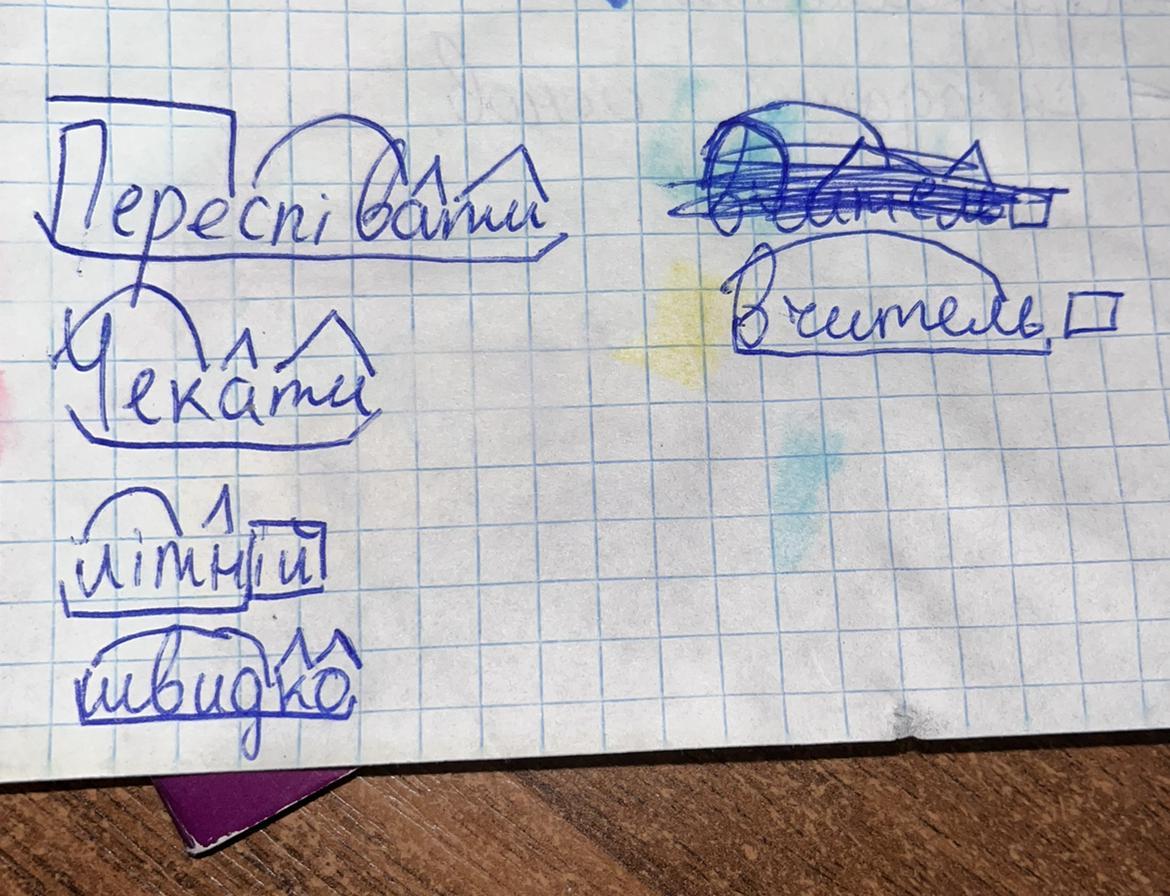 Переспівати
вчитель
Чекати
літній
швидко